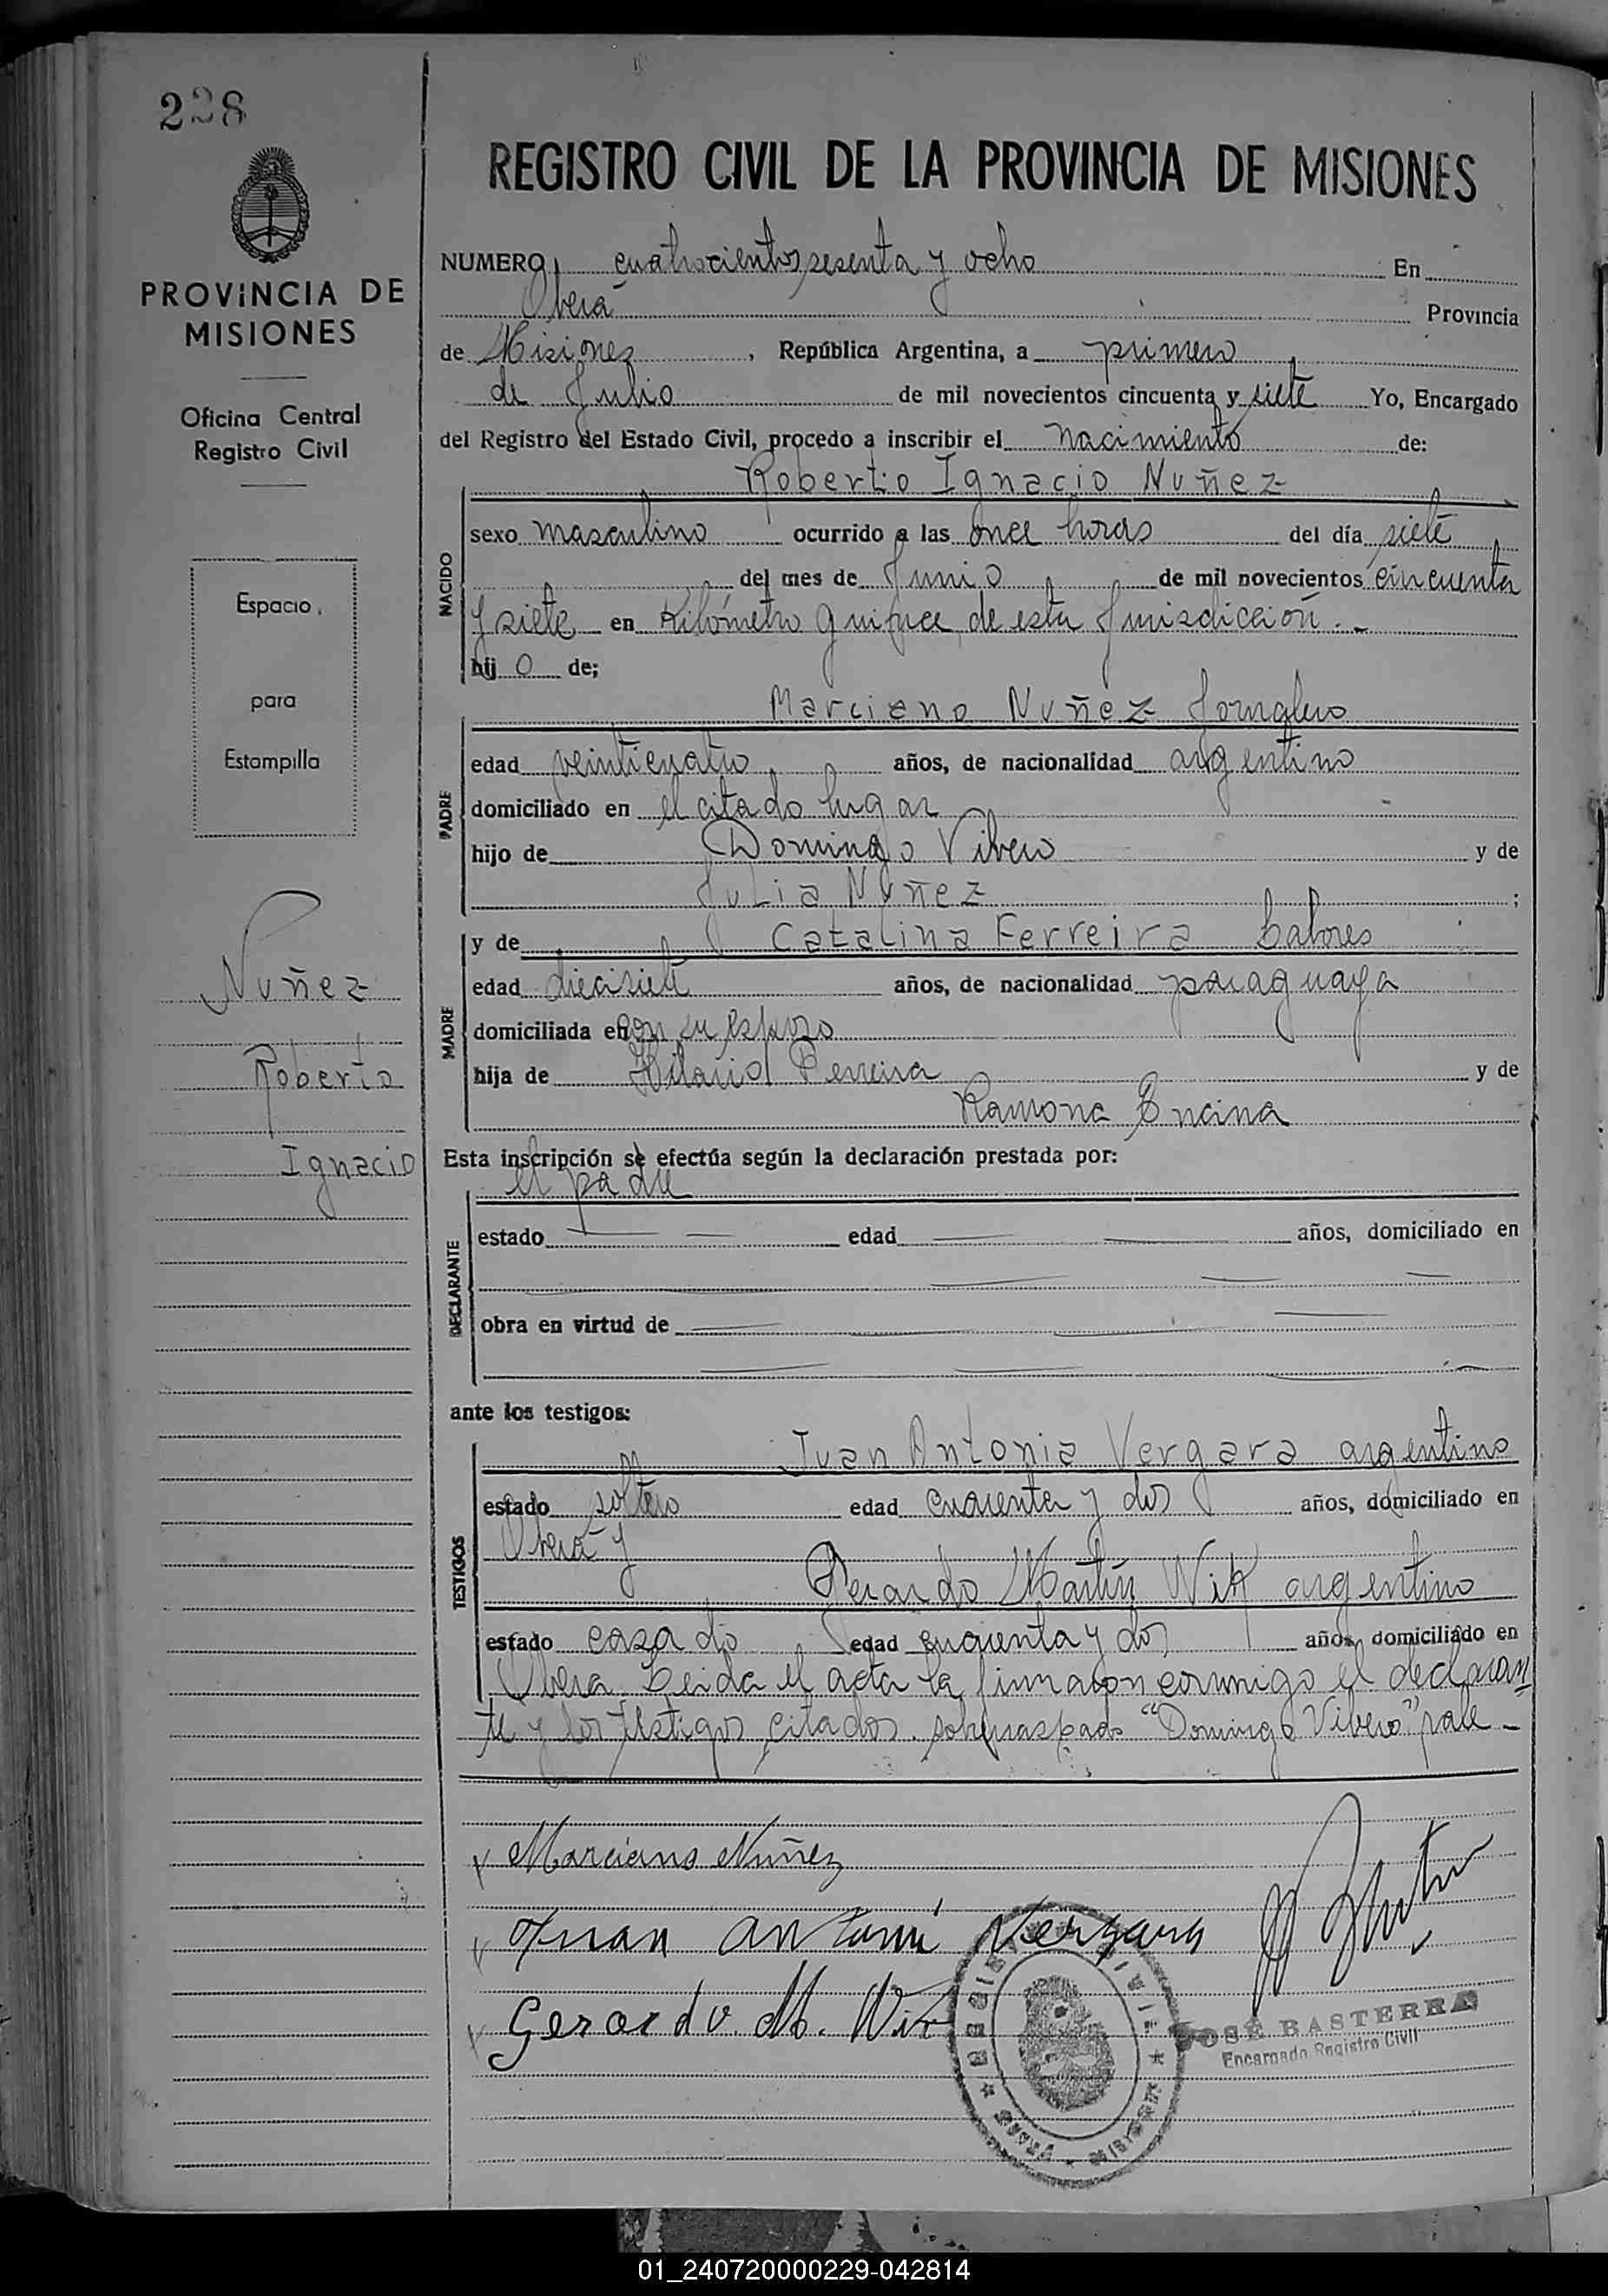 228
PROVINCIA DE
MISIONES
Oficina Central
Registro Civil
Espacio
para
Estampilla
Nuñez
Roberto
Ignacio
REGISTRO CIVIL DE LA PROVINCIA DE MISIONES
NUMERO cuatrocientos sesenta y ocho En
Oberá Provincia
de Misiones, República Argentina, a primero
de Julio de mil novecientos cincuenta y siete Yo, Encargado
del Registro del Estado Civil, procedo a inscribir el nacimiento de:
Roberto Ignacio Nuñez
NACIDO
sexo masculino ocurrido a las once horas del día siete
del mes de Junio de mil novecientos cincuenta
y siete en Kilómetro quince de esta Jurisdicción.-
hij o de;
Marciano Nuñez Jornalero
PADRE
edad veinticuatro años, de nacionalidad argentino
domiciliado en el citado lugar
hijo de Domingo Vivero y de
Julia Nuñez ;
y de Catalina Ferreira Labores
MADRE
edad diecisiete años, de nacionalidad paraguaya
domiciliada en con su esposo
hija de Hilario Ferreira y de
Ramona Encina
Esta inscripción se efectúa según la declaración prestada por:
el padre
DECLARANTE
estado edad años, domiciliado en
obra en virtud de
ante los testigos:
Juan Antonio Vergara argentino
TESTIGOS
estado soltero edad cuarenta y dos años, domiciliado en
Oberá y
Gerardo Martín Wik argentino
estado casado edad cuarenta y dos años, domiciliado en
Oberá. Leida el acta la firmaron conmigo el declaran
te y los testigos citados. sobrerraspado "Domingo Vivero" vale -
Marciano Nuñez
Juan Antoni Vergara
Gerardo M. Wik
JOSÉ BASTERRA
Encargado Registro Civil
01_240720000229-042814